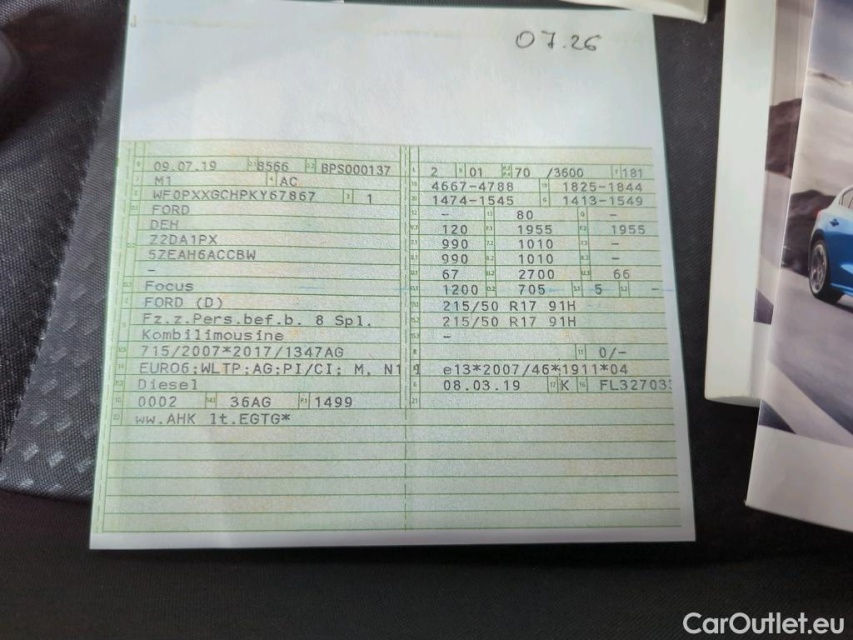 07.26
09.07.19 8566 BPS000137
M1 AC
WF0PXXGCHPKY67867 1
FORD
DEH
Z2DA1PX
5ZEAH6ACCBW
-
Focus
FORD (D)
Fz.z.Pers.bef.b. 8 Spl.
Kombilimousine
715/2007*2017/1347AG
EURO6;WLTP;AG;PI/CI; M, N1
Diesel
0002 36AG 1499
ww.AHK lt.EGTG*
2 01 70 /3600 181
4667-4788 1825-1844
1474-1545 1413-1549
- 80 -
120 1955 1955
990 1010 -
990 1010 -
67 2700 66
1200 705 5 -
215/50 R17 91H
215/50 R17 91H
-
0/-
e13*2007/46*1911*04
08.03.19 K FL32703
CarOutlet.eu